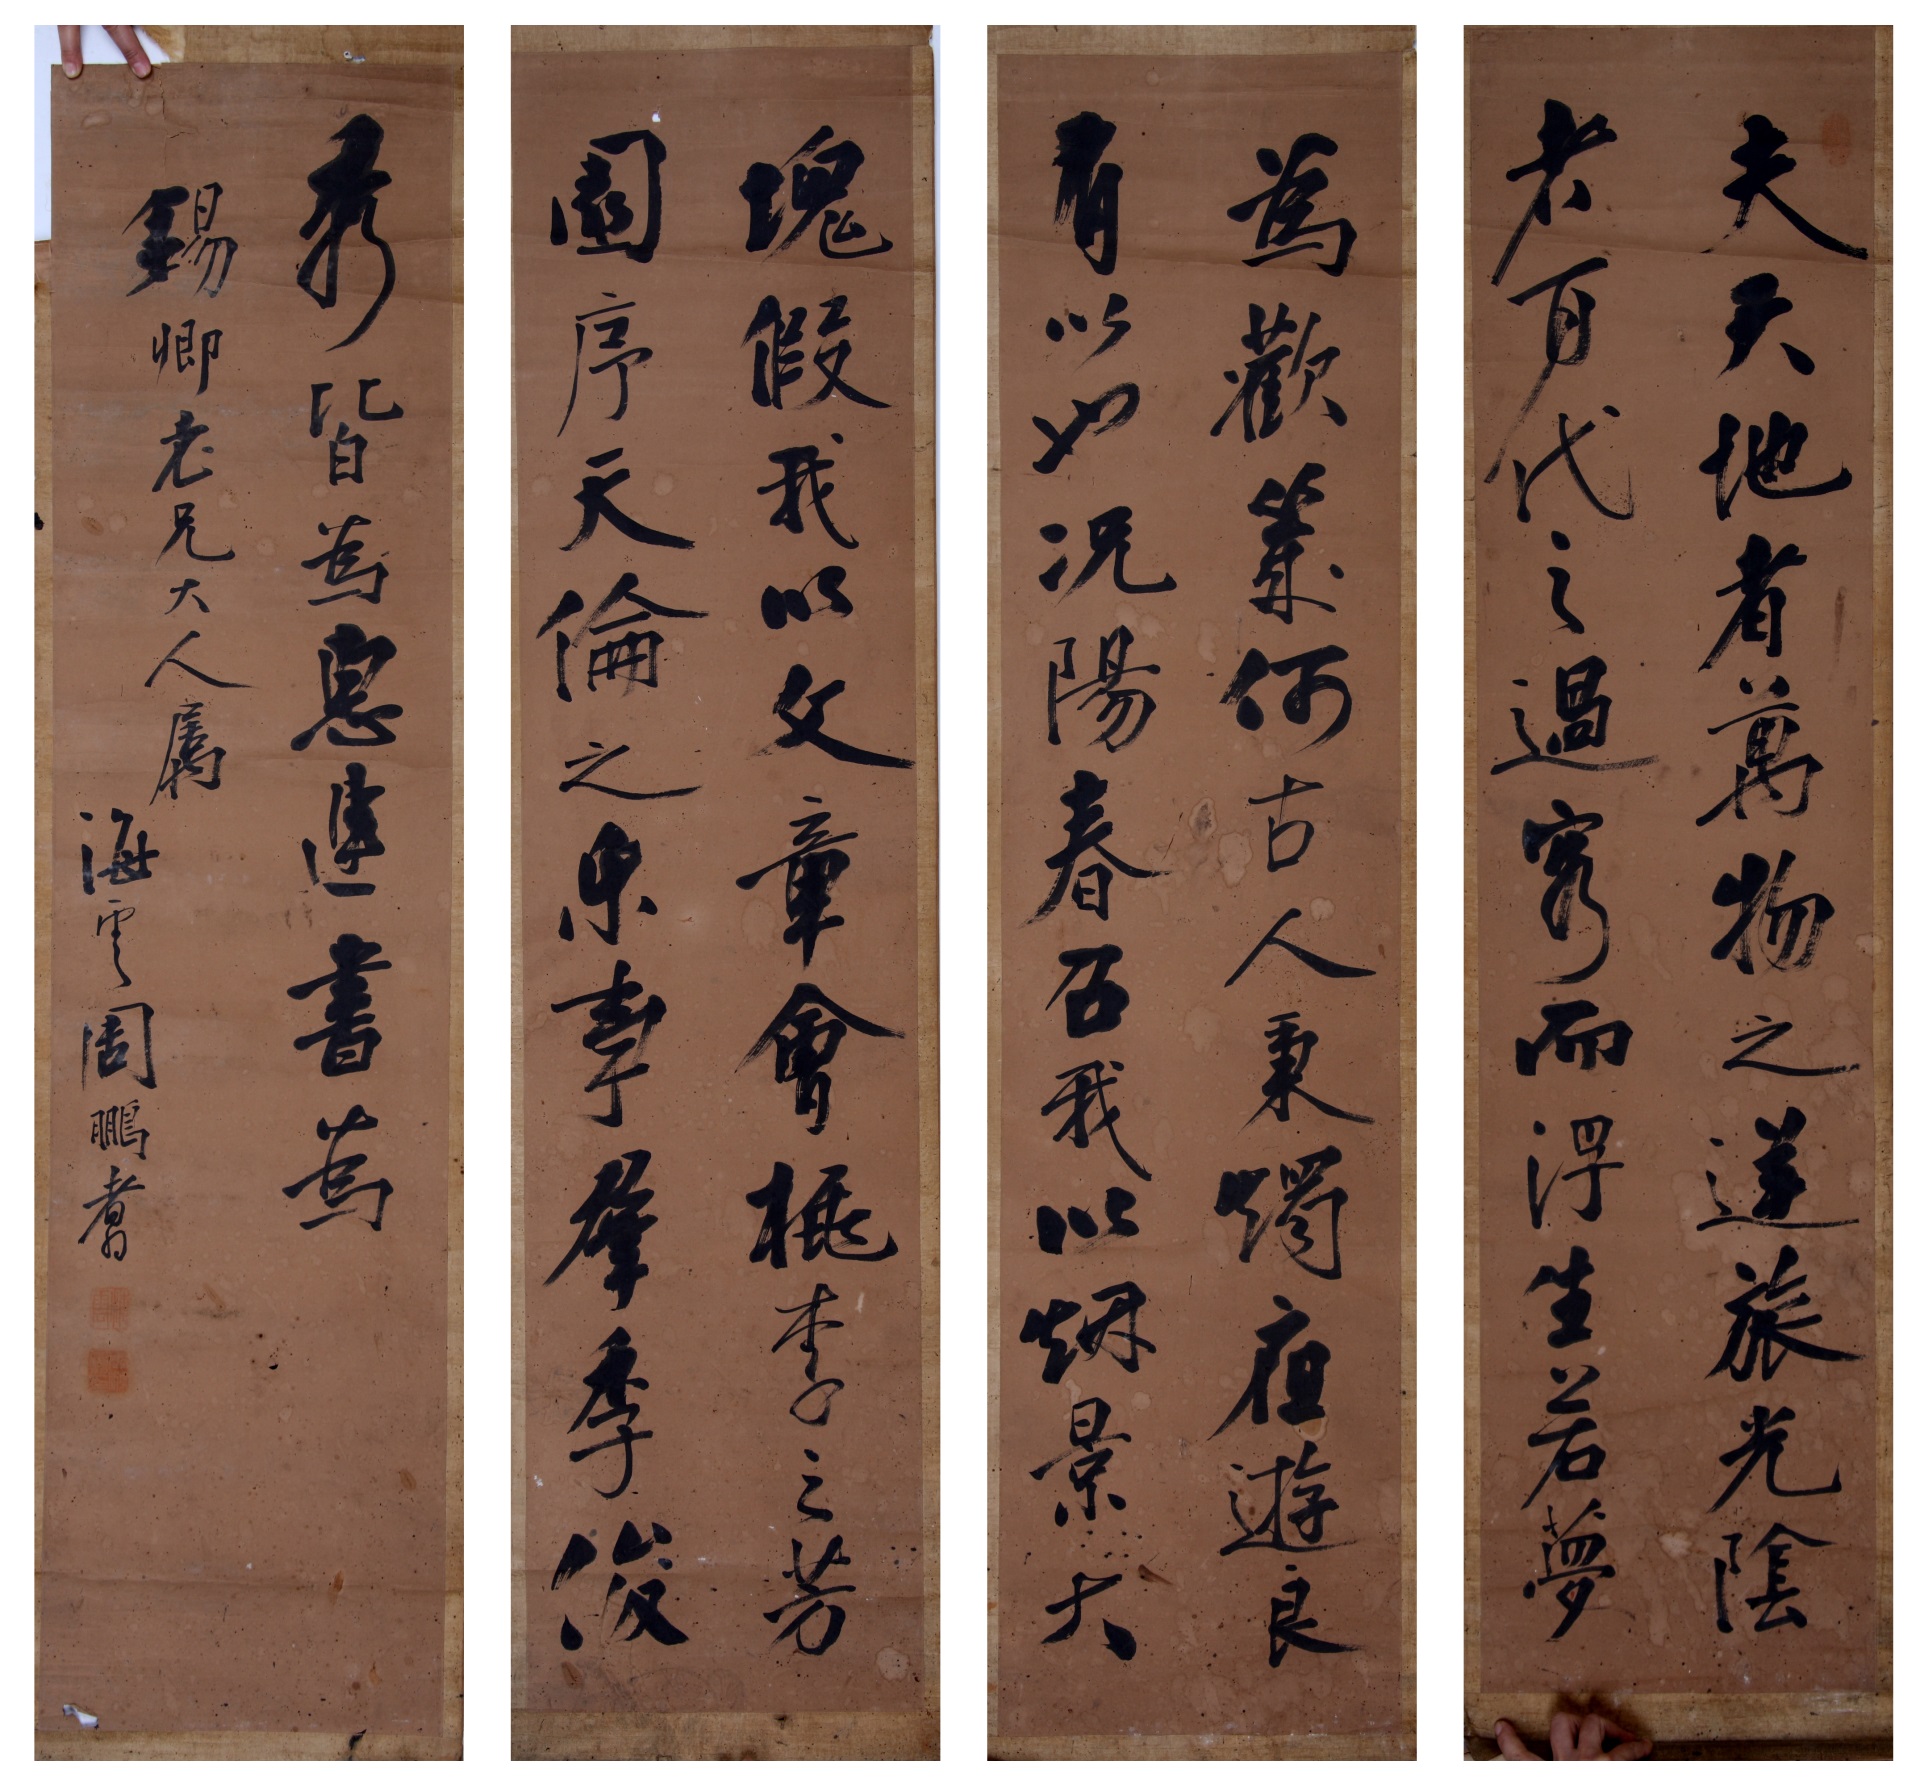 夫天地者萬物之逆旅光陰
者百代之過客而浮生若夢
為歡幾何古人秉燭夜遊良
有以也况陽春召我以烟景大
塊假我以文章會桃李之芳
園序天倫之乐事羣季俊
秀皆為惠連書為
錫卿老兄大人屬
海雲周鵬翥